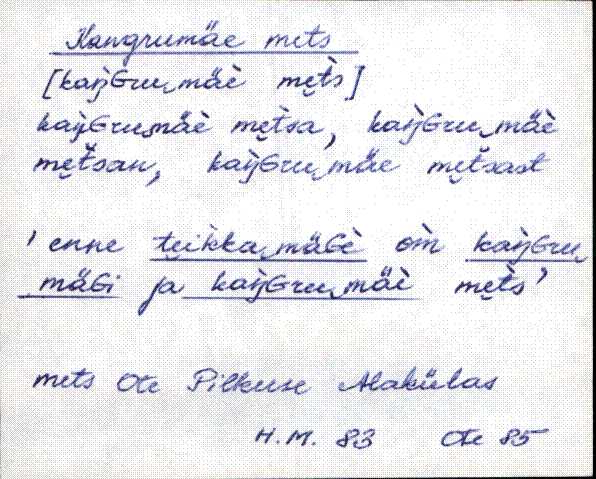 Kangrumäe mets
[kaŋ̀Gru‿mäè mèt̀s]
kaŋ̀Gru‿mäè mèt̀sa, kaŋ̀Gru‿mäè
mètšan, kaŋ̀Gru‿mäe mètšast
' enne teikka‿mäGè om̀ kaŋ̀Gru‿
mäGi ja kaŋ̀Gru‿mäè mèt̀s'
mets Ote Pilkuse Alakülas
H.M. 83 Ote 85